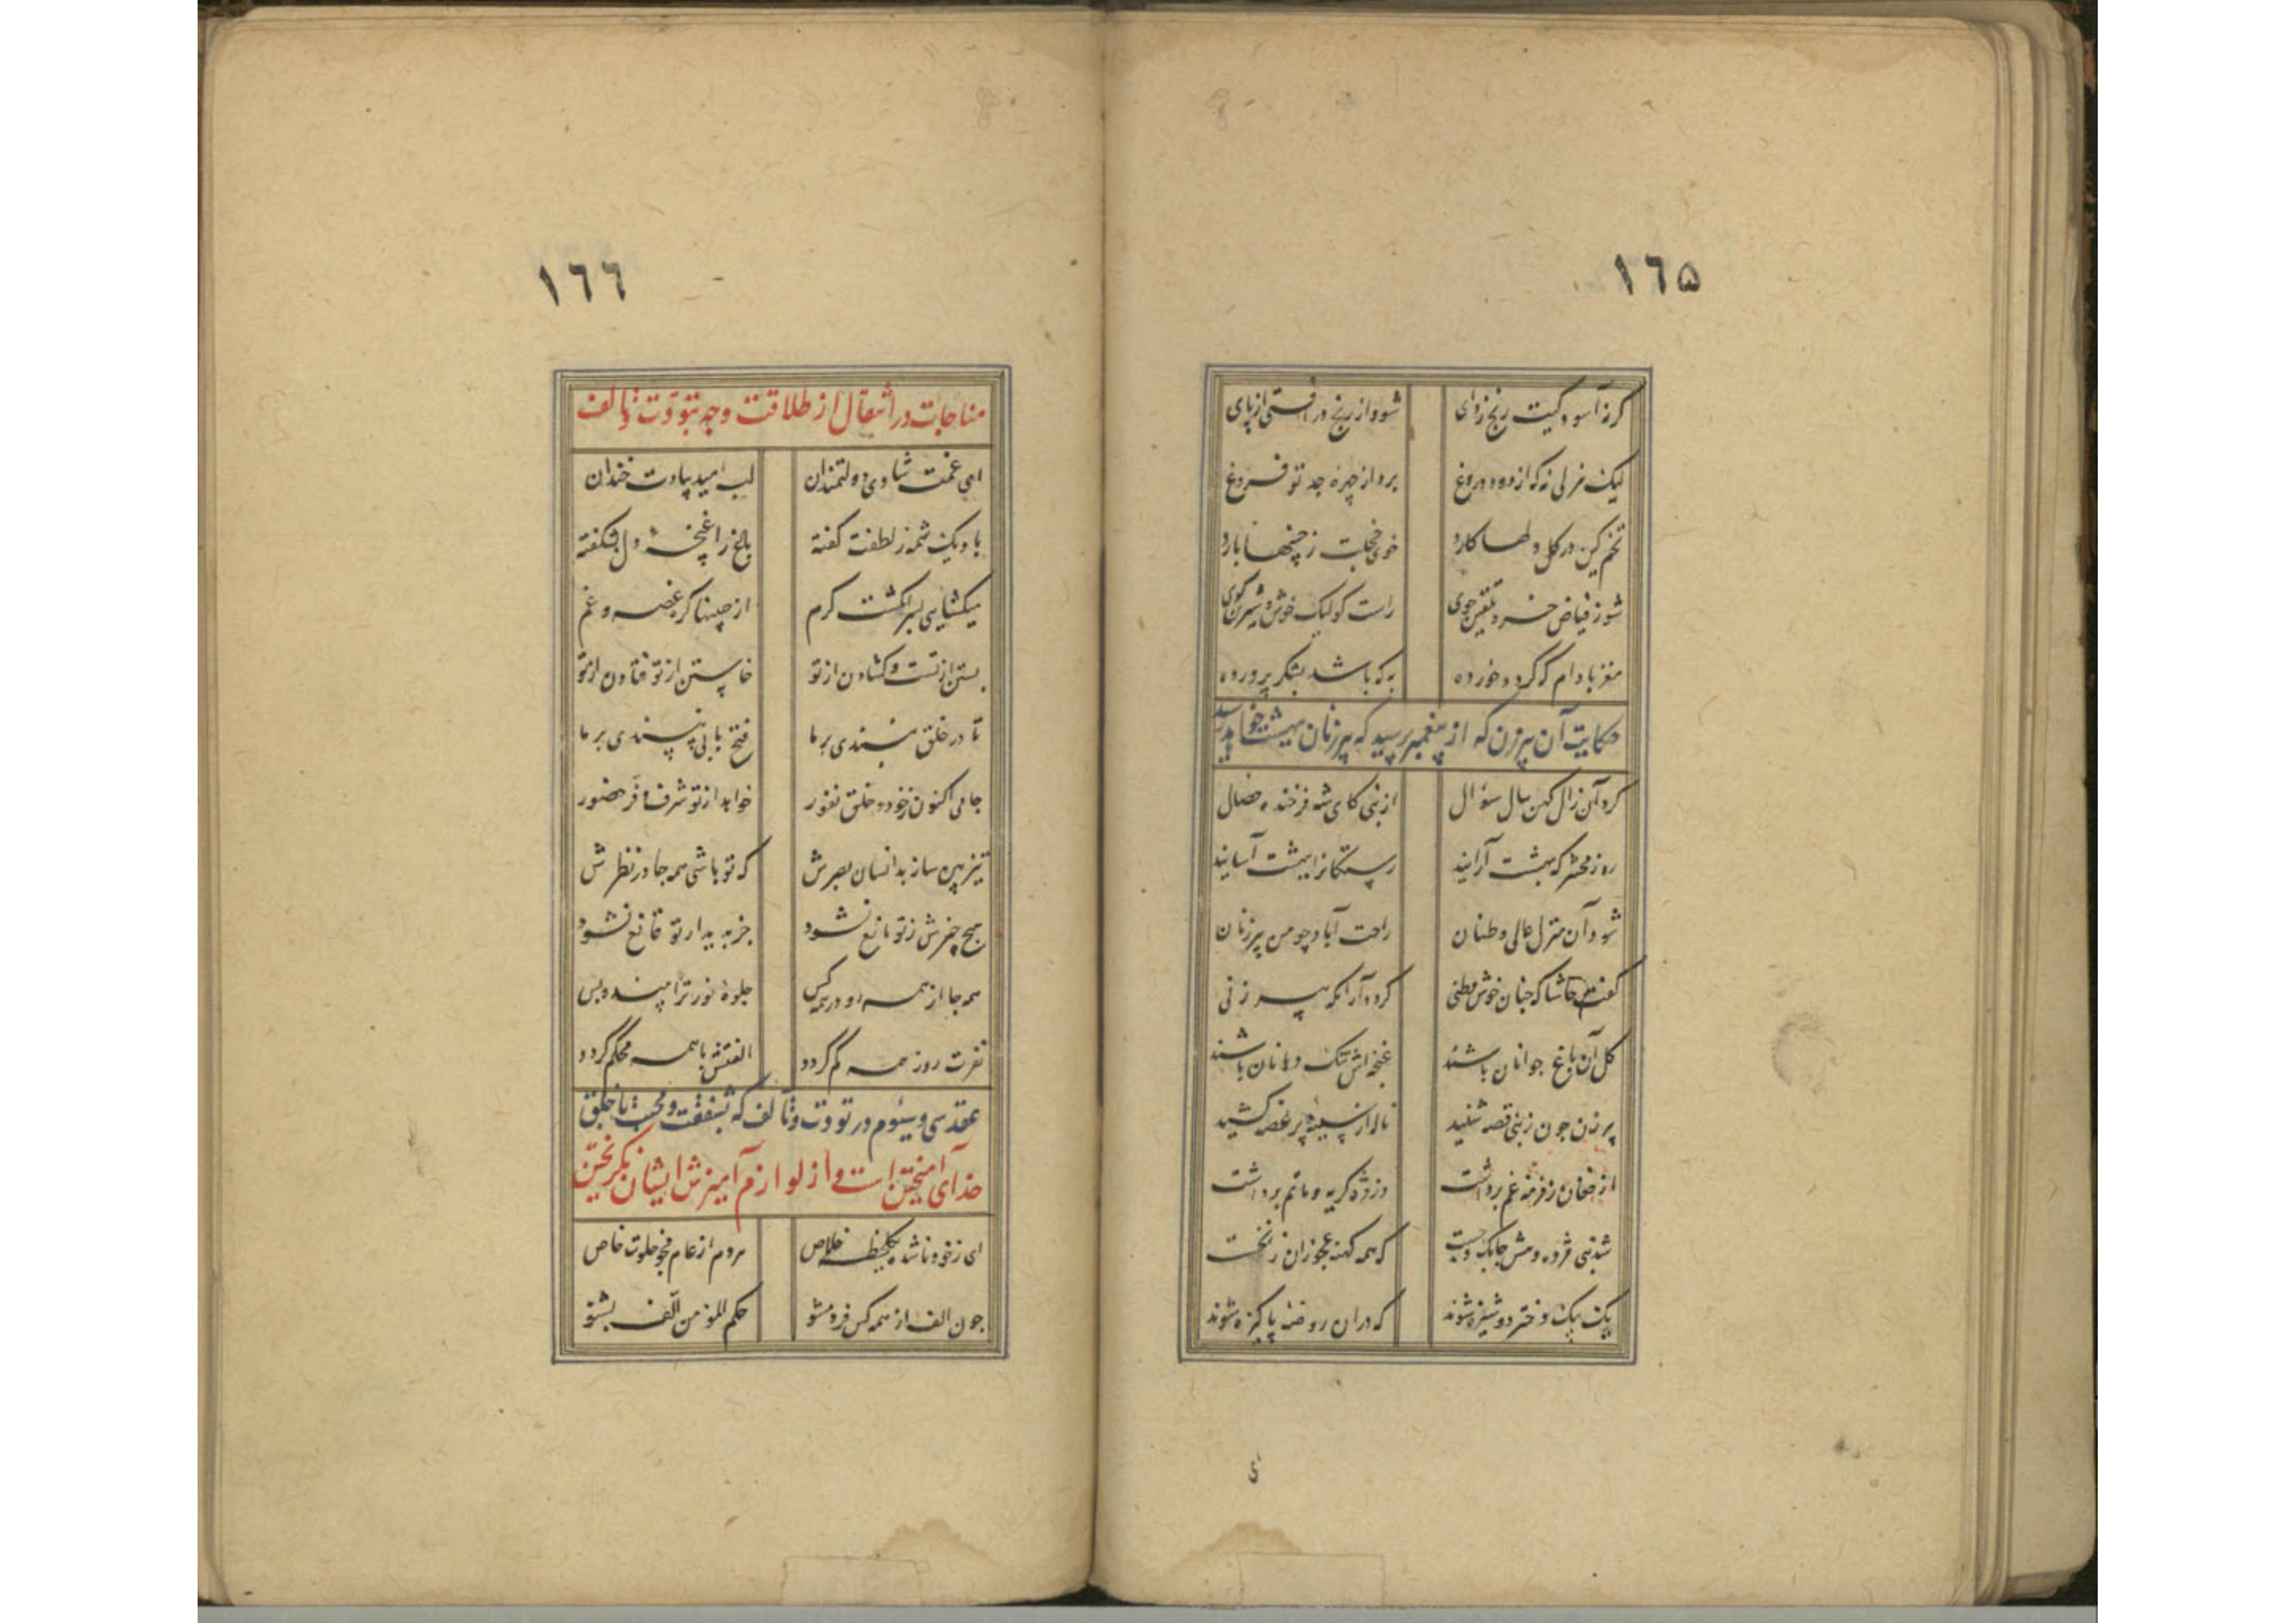 ١٦۵
گر نه آسودگیت رنج زدای شود از رنج در افتی از پای
لیک هزلی نه که از دود دروغ برد از چهره جد تو فروغ
تخم کین در گل دلها کارد خوی خجلت ز جبینها بارد
شو ز فیاض خرد تلقین جوی راست گو لیک خوش و شیرین گوی
مغز بادام که گردد خورده به که باشد بشکر پرورده
حکایت آن پیرزن که از پیغمبر پرسید که پیرزنان بهشت خواهد رسید
کرد آن زال کهن سال سؤال از نبی کای شه فرخنده خصال
روز محشر که بهشت آرایند رستگانرا ببهشت آسایند
شود آن منزل عالی وطنان راحت آباد چو من پیرزنان
گفت حاشا که جنان خوش وطنی گردد آرامگه پیر زنی
گل آن باغ جوانان باشند غنچه اش تنگ دهانان باشند
پیر زن چون ز نبی قصه شنید ناله از سینه پر غصه کشید
از فغان زمزمه غم برداشت وز مژه گریه و ماتم برداشت
شد نبی مژده دهش چابک و چست که همه کهنه عجوزان ز نخست
یک بیک دختر دوشیزه شوند که دران روضه پاکیزه شوند
١٦٦
مناجات در انتقال از طلاقت وجه بتودت و تالف
ای غمت شادی دولتمندان لب امید بیادت خندان
باد یک شمه ز لطفت گفته باغ را غنچه دل بشکفته
میکشایی بسر انگشت کرم از جبینها گره غصه و غم
بستن از تست و گشادن از تو خاستن از تو فتادن از تو
تا در خلق نبندی بر ما فتح بابی نپسندی بر ما
جامی اکنون ز خود و خلق نفور خواهد از تو شرف و فر حضور
تیزبین ساز بدانسان بصرش که تو باشی همه جا در نظرش
هیچ چیزش ز تو مانع نشود جز به دیدار تو قانع نشود
همه جا از همه رو در همه کس جلوه نور ترا بیند و بس
نفرت روز همه کم گردد الفتش با همه محکم گردد
عقد سی و سیوم در تودت و تالف که بشفقت و محبت با خلق
خدای آمیختن است و از لوازم آمیزش ایشان نگریختن
ای ز خود ناشده یکلحظه خلاص مردم از عام مجو خلوت خاص
چون الف از همه کس فرد مشو حکم المؤمن آلف بشنو